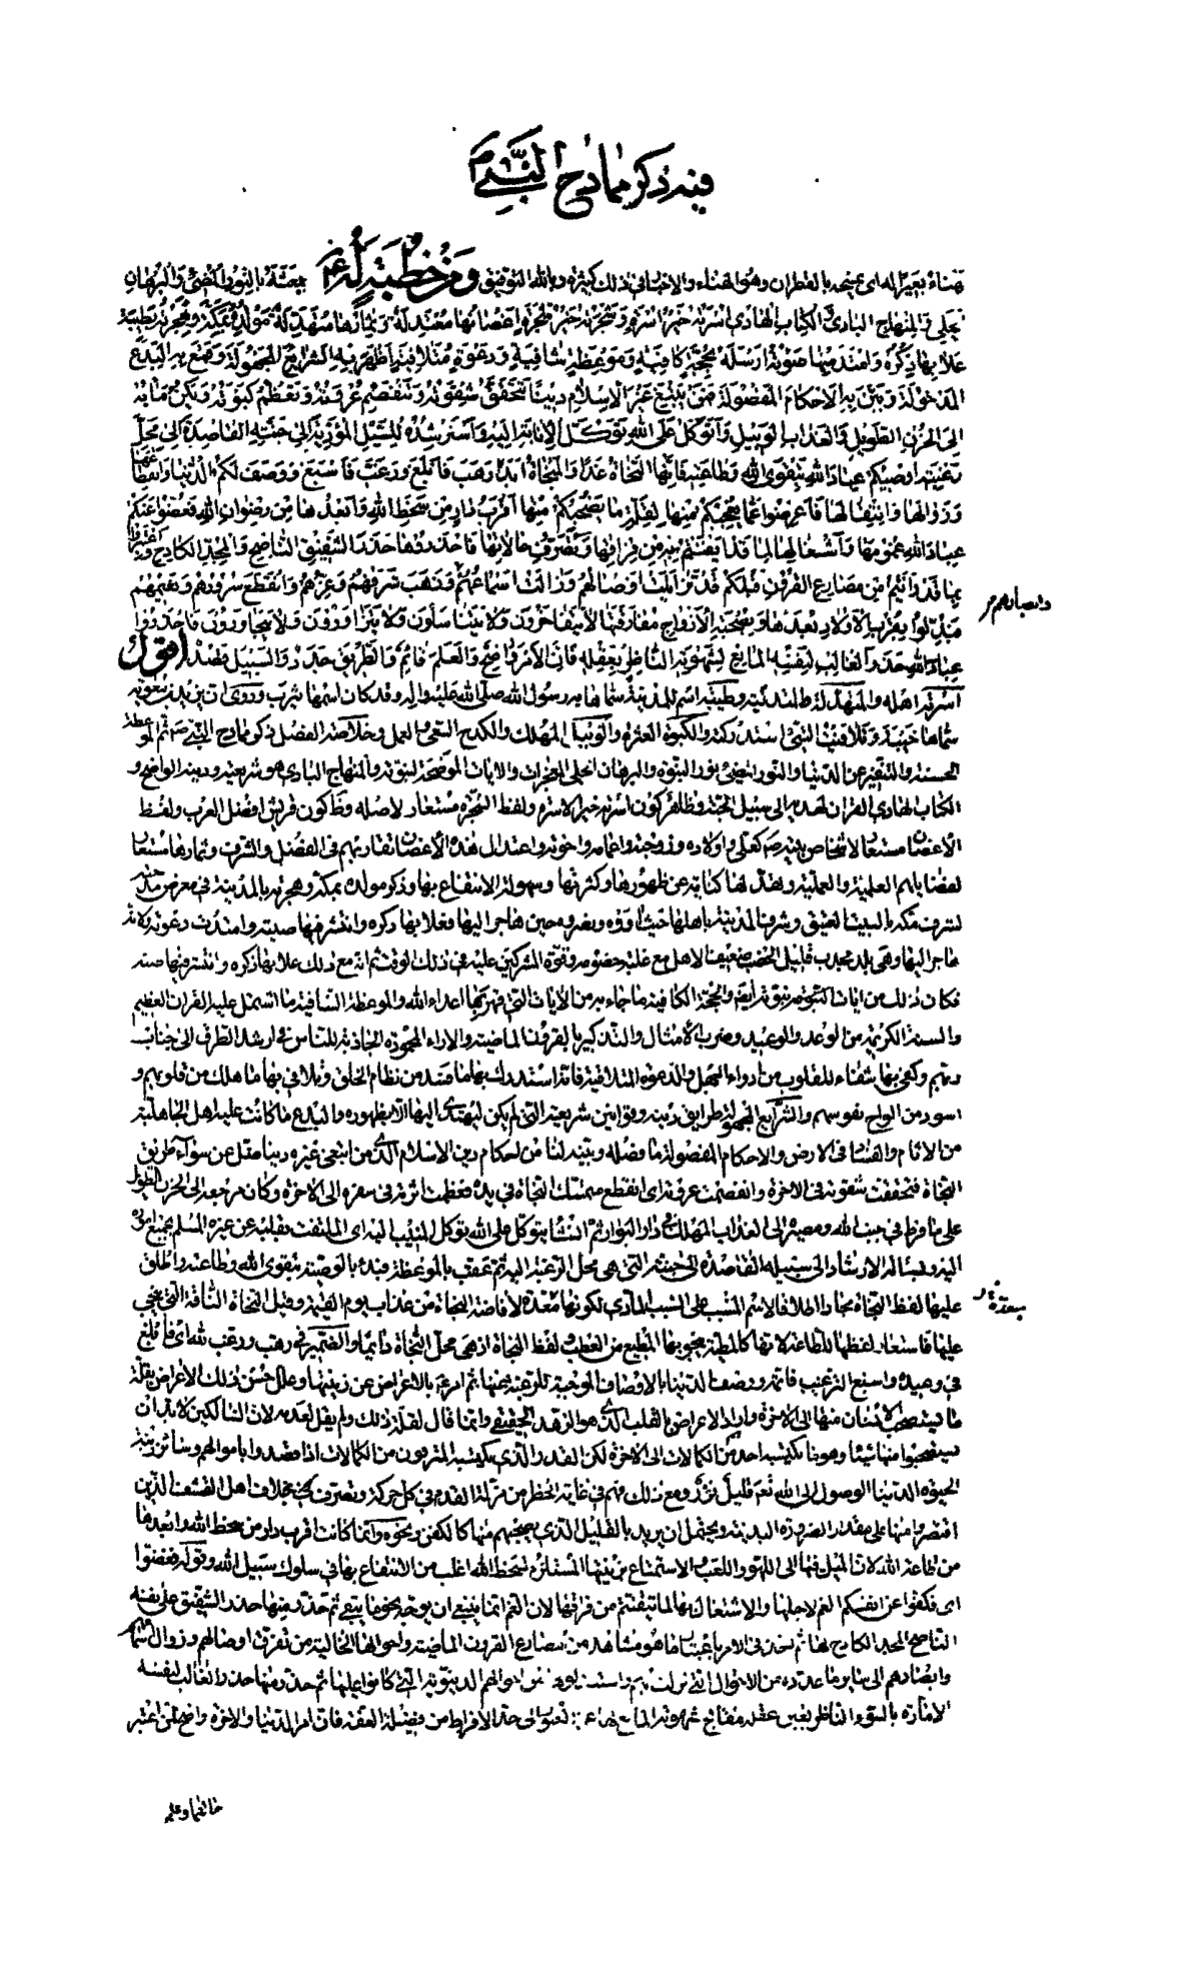 فيه ذكر ممادح النبي ص
تهنأ بعيرا له اى عنيه بالقطران وهو الهناء والاخبار فى ذلك كثيرة وبالله التوفيق وَمِنْ خُطْبَةٍ لَهُ ع بعثه بالنور المضىء والبرهان
الجلى والمنهاج البادى والكتاب الهادى اسرته خير اسرة وشجرته خير شجرة اغصانها معتدلة وثمارها متهدلة مولده بمكة وهجرته بطيبة
علا بها ذكره وامتد منها صوته ارسله بحجة كافية وموعظة شافية ودعوة متلافية اظهر به الشرائع المجهولة وقمع به البدع
المدخولة وبين به الاحكام المفصولة فمن يبتغ غير الاسلام دينا تتحقق شقوته وتنفصم عروته وتعظم كبوته ويكن مآبه
الى الحزن الطويل والعذاب الوبيل واتوكل على الله توكل الانابة اليه واسترشده السبيل المؤدية الى جنته القاصدة الى محل
رغبته اوصيكم عباد الله بتقوى الله وطاعته فانها النجاة غدا والمنجاة ابدا رهب فابلغ ورغب فاسبغ ووصف لكم الدنيا وانقطاعها
وزوالها وانتقالها فاعرضوا عما يعجبكم فيها لقلة ما يصحبكم منها اقرب دار من سخط الله وابعدها من رضوان الله فغضوا عنكم
عباد الله غمومها واشغالها لما قد ايقنتم به من فراقها وتصرف حالاتها فاحذروها حذر الشفيق الناصح والمجد الكادح واعتبروا
بما قد رايتم من مصارع القرون قبلكم قد تزايلت اوصالهم وزالت اسماعهم وذهب شرفهم وعزهم وانقطع سرورهم ونعيمهم
وابصارهم
فبدلوا بقرب الاولاد بعدها وبصحبة الازواج مفارقتها لا يتفاخرون ولا يتناسلون ولا يتزاورون ولا يتجاورون فاحذروا
عباد الله حذر الغالب لنفسه المانع لشهوته الناظر بعقله فان الامر واضح والعلم قائم والطريق جدد والسبيل قصد اقول
اسرته اهله والمتهدلة المتدلية وطيبة اسم للمدينة سماها به رسول الله صلى الله عليه واله وقد كان اسمها يثرب وروى ان يزيد بن معوية
سماها خيبة وتلافيت الشىء استدركته والكبوة العثرة والوبيل المهلك والكدح السعى والعمل وخلاصة الفصل ذكر ممادح النبى ص ثم الموعظة
الحسنة والتنفير عن الدنيا والنور المضىء نور النبوة والبرهان الجلى المعجزات والايات الموضحة لنبوته والمنهاج البادى هو شريعته ودينه الواضح و
الكتاب الهادى القران لهديه الى سبيل الجنة وظاهر كون اسرته خير الاسرة ولفظ الشجرة مستعار لاصله وظ كون قريش افضل العرب ولفظ
الاغصان مستعار لاشخاص بيته ص كعلى واولاده وزوجته واعمامه واخوته واعتدال هذه الاغصان تقاربهم فى الفضل والشرف وثمارها مستعار
لفضائلهم العلمية والعملية وتهدلها كناية عن ظهورها وكثرتها وسهولة الانتفاع بها وذكر مولده بمكة وهجرته بالمدينة فى معرض مدحته
لشرف مكة بالبيت العتيق وشرف المدينة باهلها حيث اووه ونصروه حين هاجر اليها فعلا بها ذكره وانتشر فيها صيته وامتدت دعوته ولانه
هاجر اليها وهى بلد مجدب قليل الخصب ضعيف الاهل مع غلبة خصومه وقوة المشركين عليه فى ذلك الوقت ثم انه مع ذلك علا بها ذكره وانتشر فيها صيته
فكان ذلك من ايات نبوته ايضا والحجة الكافية ما جاء به من الايات التى قهر بها اعداء الله والموعظة الشافية ما اشتمل عليه القران العظيم
والسنة الكريمة من الوعد والوعيد وضرب الامثال والتذكير بالقرون الماضية والاراء المحمودة الجاذبة للناس فى ارشد الطرق الى جناب
ربهم وكفى بها شفاء للقلوب من ادواء الجهل والدعوة المتلافية فانه استدرك بها ما فسد من نظام الخلق وتلافى بها ما هلك من قلوبهم و
اسود من الواح نفوسهم والشرايع المجهولة طرايق دينه وقوانين شريعته التى لم يكن ليهتدى اليها الا بظهوره والبدع ما كانت عليه اهل الجاهلية
من الاثام والفساد فى الارض والاحكام المفصولة ما فصله وبينه لنا من احكام دين الاسلام الذى من ابتغى غيره دينا ضل عن سواء طريق
النجاة فتحققت شقوته فى الاخرة وانفصمت عروته اى انقطع متمسك النجاة فى يده فعظمت عثرته فى سفره الى الاخرة وكان مرجعه الى الحزن الطويل
على ما فرط فى جنب الله ومصيره الى العذاب المهلك فى دار البوار ثم انشا يتوكل على الله توكل المنيب اليه اى الملتفت بقلبه عن غيره المسلم بجميع اموره
اليه وبساله الارشاد الى سبيله القاصدة الى جنته التى هى محل الرغبة اليه ثم عقب بالموعظة فبدء بالوصية بتقوى الله وطاعته واطلق
عليها لفظ النجاة مجازا اطلاقا لاسم المسبب على السبب المادى لكونها معدة لافاضة النجاة من عذاب يوم القيمة وقيل النجاة الناقة التى ينجى
معدة
عليها فاستعار لفظها للطاعة لانها كالمطية ينجو بها المطيع من العطب ولفظ المنجاة اذ هى محل النجاة دائما والضمير فى رهب ورغب لله اى فابلغ
فى وعيده واسبغ الترغيب فاتمه ووصف الدنيا بالاوصاف الموجبة للرغبة عنها ثم امر بالاعراض عن زينتها وعلل حسن ذلك الاعراض بقلة
ما يستصحب الانسان منها الى الاخرة واراد الاعراض بالقلب الذى هو الزهد الحقيقى وانما قال لقلة ذلك ولم يقل لعدمه لان السالكين لا بد ان
يستصحبوا منها شيئا وهو ما يكتسبه احدهم من الكمالات الى الاخرة لكن القدر الذى يكتسبه المترفون من الكمالات اذا قصدوا باموالهم وسائر زينة
الحيوة الدنيا الوصول الى الله تعم قليل نزر ومع ذلك فهم فى غاية الخطر من مزلة القدم فى كل حركة وتصرف بخلاف اهل القشف الذين
اقتصروا منها على مقدار الضرورة البدنية ويحتمل ان يريد بالقليل الذى يصحبهم منها كالكفن ونحوه وانما كانت اقرب دار من سخط الله وابعدها
من طاعة الله لان الميل فيها الى اللهو واللعب والاستمتاع بزينتها المستلزم لسخط الله اغلب من الانتفاع بها فى سلوك سبيل الله وقوله فغضوا
اى فكفوا عن انفسكم الغم لاجلها والاشتغال بها لما تيقنتم من فراقها لان الغم انما ينبغى ان يوجه نحو ما يبقى ثم حذر منها حذر الشفيق على نفسه
الناصح المجد الكادح لها ثم اخذ فى الامر باعتبار ما هو مشاهد من مصارع القرون الماضية واحوالها الخالية من تفرق اوصالهم وزوال اسماعهم
وابصارهم الى سائر ما عدده من الاحوال التى نزلت بهم واستبدلوها من احوالهم الدنيوية التى كانوا عليها ثم حذر منها حذر الغالب لنفسه
الامارة بالسوء الناظر بعين عقله مقابح شهوته المانع لها عن العبور الى حد الافراط من فضيلة العفة فان امر الدنيا والاخرة واضح لمن اعتبر
حالهما وعلم